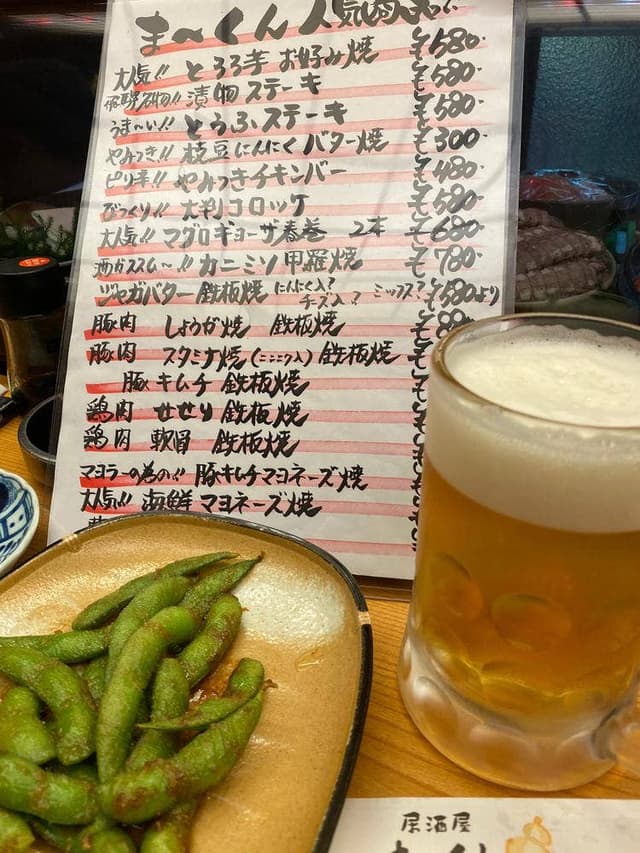 ま〜くん人気
大人気!! とろろ芋 お好み焼 ¥580-
飛騨名物!! 漬物ステーキ ¥580-
うま〜い!! とうふステーキ ¥580-
やみつき!! 枝豆にんにくバター焼 ¥300-
ピリ辛!! やみつきチキンバー ¥480-
びっくり!! 大判コロッケ ¥580-
大人気!! マグロギョーザ春巻 2本 ¥680-
酒がススム〜!! カニミソ甲羅焼 ¥780-
ジャガバター鉄板焼 にんにく入? チーズ入? ミックス? ¥580より
豚肉 しょうが焼 鉄板焼
豚肉 スタミナ焼(ニンニク入)鉄板焼
豚キムチ 鉄板焼
鶏肉 せせり 鉄板焼
鶏肉 軟骨 鉄板焼
マヨラーの為の!! 豚キムチマヨネーズ焼
大人気!! 海鮮マヨネーズ焼
居酒屋